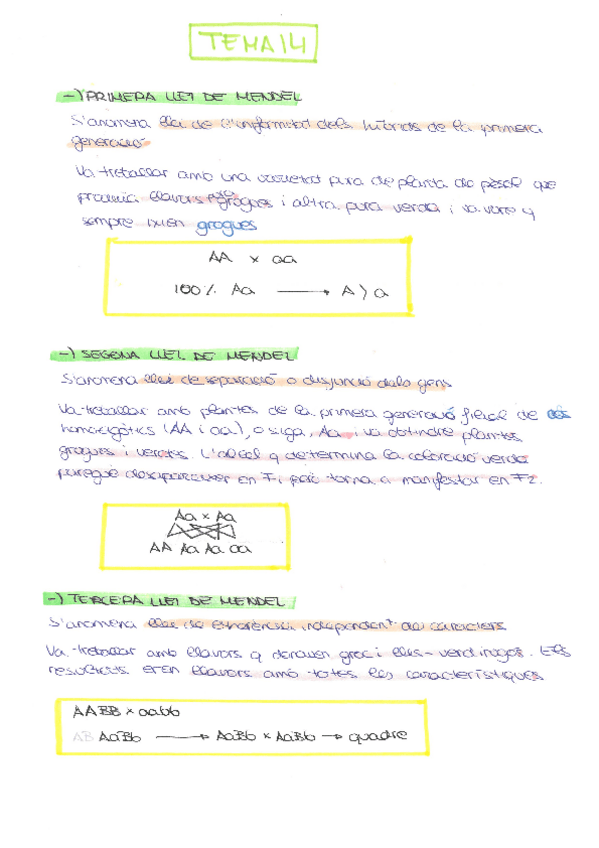 TEMA 14
-) PRIMERA LLEI DE MENDEL
S'anomena llei de l'uniformitat dels híbrids de la primera
generació
Va treballar amb una varietat pura de planta de pèsol que
produïa llavors grogues i altra pura verda i va vore q
sempre ixien grogues
AA x aa
100% Aa → A > a
-) SEGONA LLEI DE MENDEL
S'anomena llei de separació o disjunció dels gens
Va treballar amb plantes de la primera generació filial de
homozigòtics (AA i aa), o siga, Aa i va obtindre plantes
grogues i verdes. L'al·lel q determina la coloració verda
paregué desaparèixer en F1 però torna a manifestar en F2.
Aa x Aa
AA Aa Aa aa
-) TERCERA LLEI DE MENDEL
S'anomena llei de l'herència independent de caràcters
Va treballar amb llavors q donaven groc i verd. Els
resultats eren llavors amb totes les característiques
AABB x aabb
AB AaBb → AaBb x AaBb → quadre